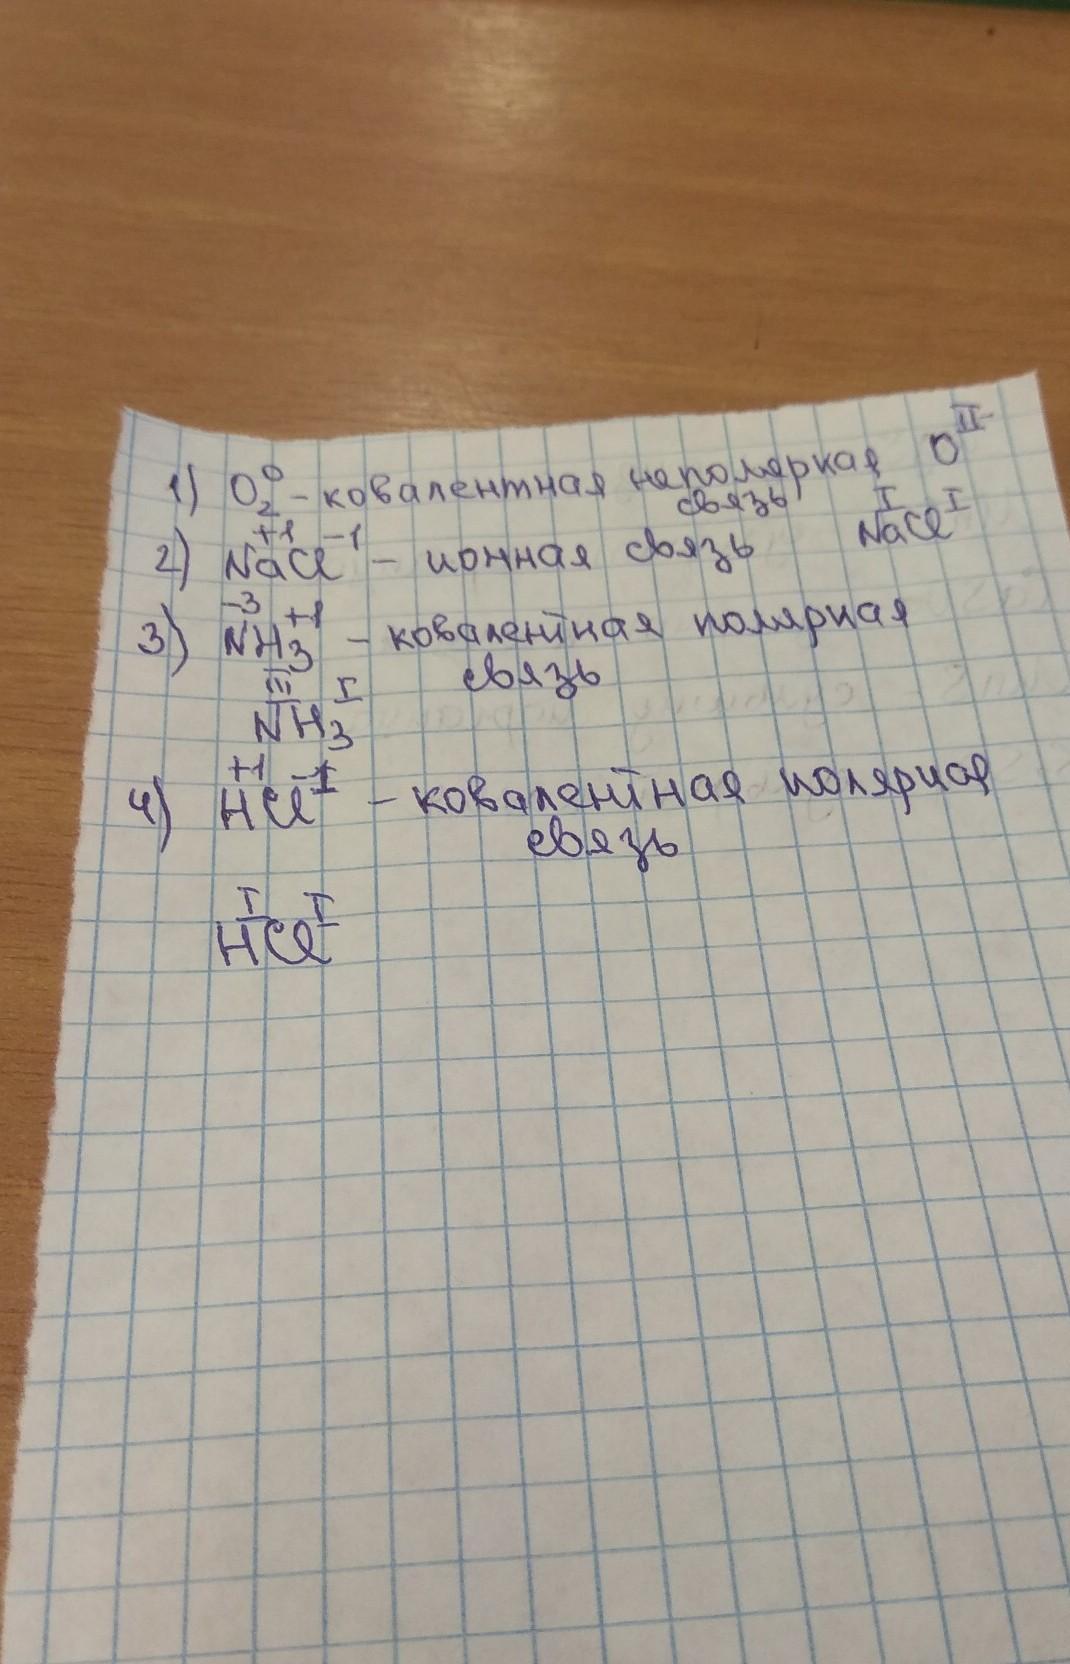 1) O₂⁰ – ковалентная неполярная O^II
связь
2) Na⁺¹Cl⁻¹ – ионная связь Na^I Cl^I
3) N⁻³H₃⁺¹ – ковалентная полярная
связь
N^III H₃^I
4) H⁺¹Cl⁻¹ – ковалентная полярная
связь
H^I Cl^I